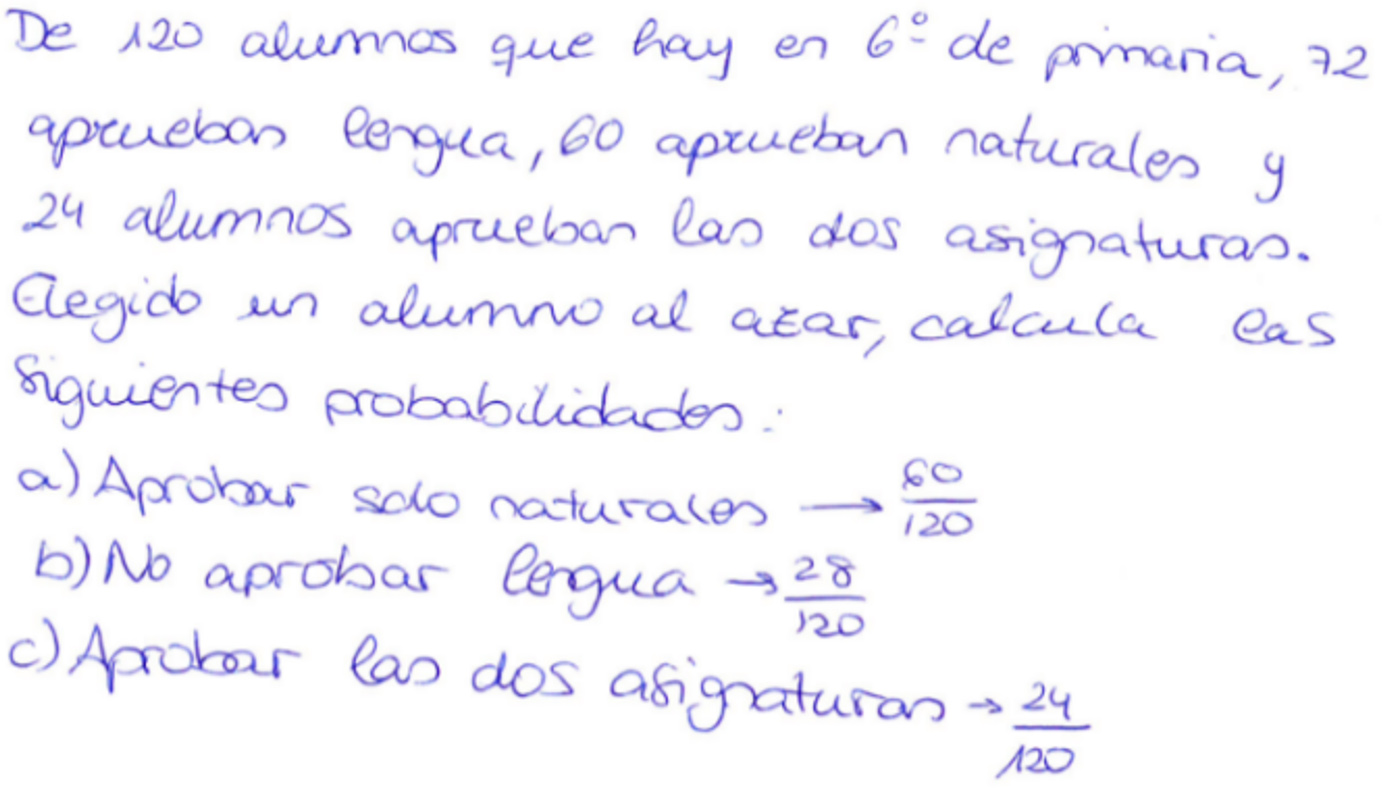 De 120 alumnos que hay en 6º de primaria, 72
aprueban lengua, 60 aprueban naturales y
24 alumnos aprueban las dos asignaturas.
Elegido un alumno al azar, calcula las
siguientes probabilidades:
a) Aprobar solo naturales → 60/120
b) No aprobar lengua → 28/120
c) Aprobar las dos asignaturas → 24/120